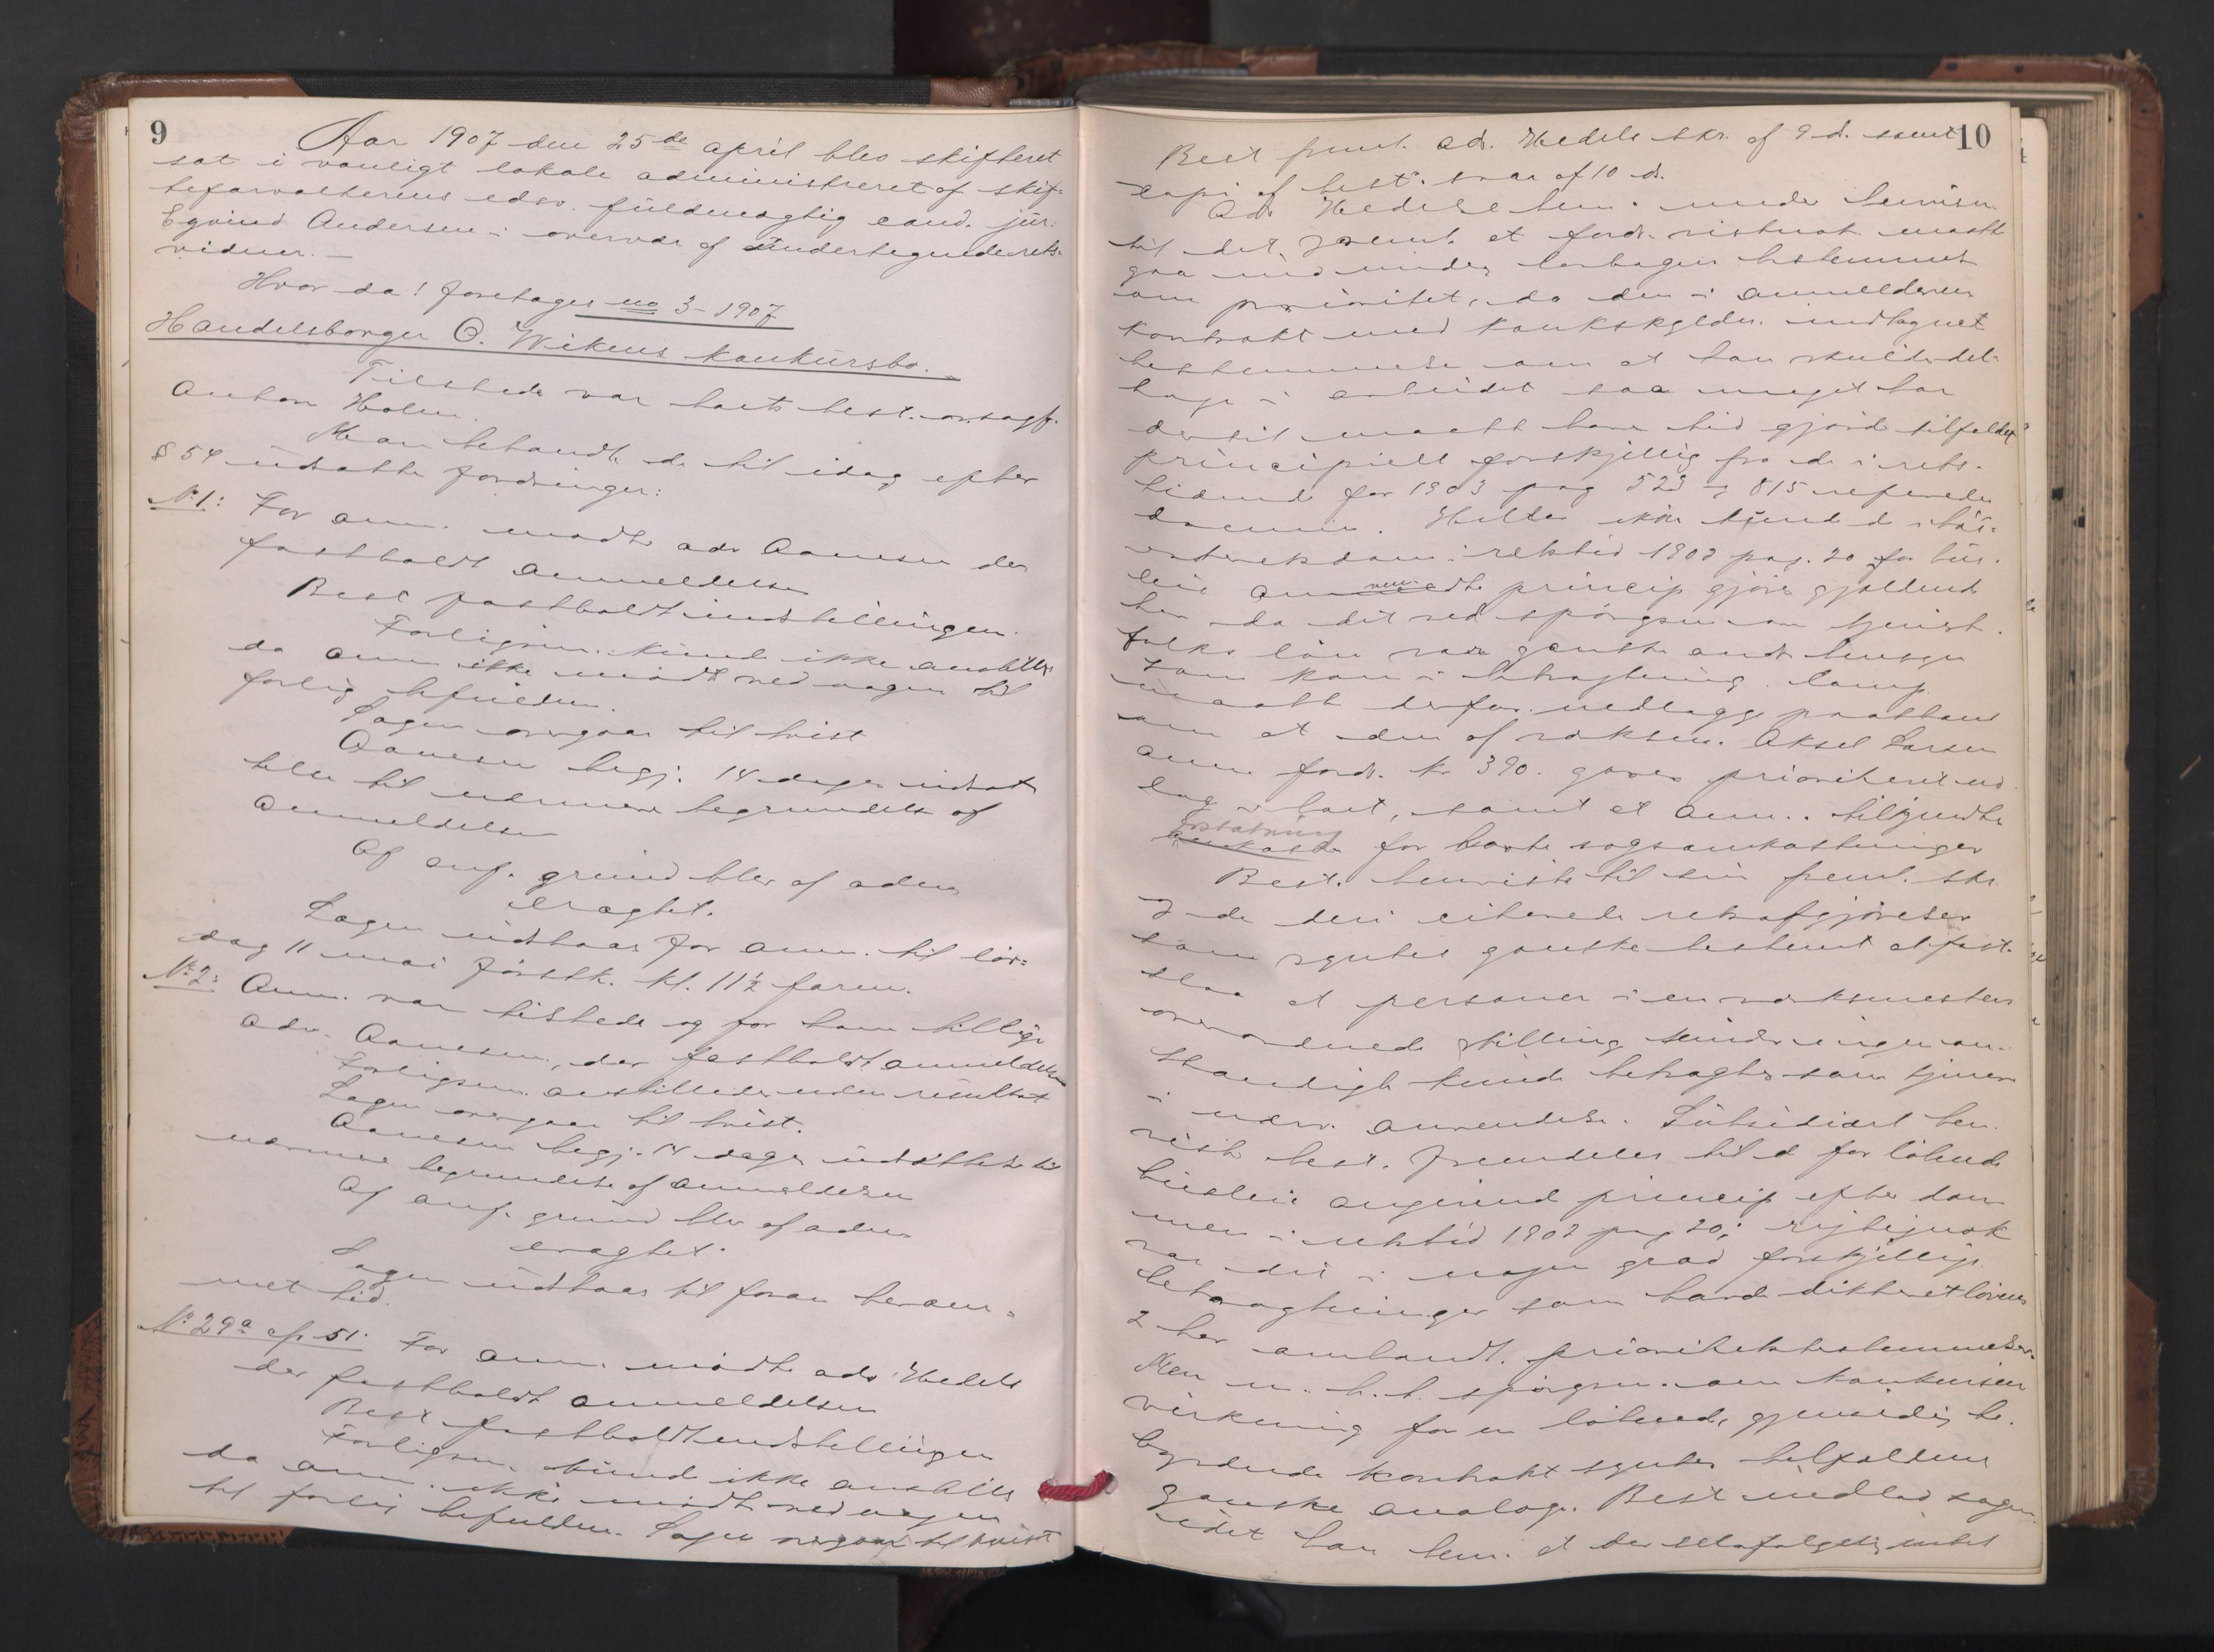 9
Aar 1907 den 25de april blev skifteret
sat i vanligt lokale administreret af skif-
teforvalterens edsv. fuldmægtig cand. jur.
Eyvind Andersen i overvær af undertegnede rets-
vidner. —
Hvor da! foretages no 3 - 1907
Handelsborger O. Wikens konkursbo.
Tilstede var boets best. o.r.sagf.
Anton Holm.
Man behandlede de til idag efter
§ 54 udsatte fordringer:
No 1: For anm. mødte adv Aanesen der
fastholdt anmeldelsen
Best fastholdt indstillingen.
Forligsm. kunde ikke anstilles
da anm ikke mødte ved nogen til
forlig befuldm.
Sagen overgaar til tvist
Aanesen begj. 14 dages udsæt
telse til nærmere begrundelse af
anmeldelsen
Af anf. grund blev af adm
eragtet.
Sagen udstaar for anm. til lør-
dag 11 mai førstk. kl. 11½ form.
No 2: Anm. var tilstede og for ham tillige
adv. Aanesen, der fastholdt anmeldelsen
Forligsm. anstilledes uden resultat
Sagen overgaar til tvist.
Aanesen begj. 14 dages udsættelse til
nærmere begrundelse af anmeldelsen
Af anf. grund blev af adm
eragtet.
Sagen udstaar til foran beram-
met tid.
No 29a cfr 51. For anm. mødte adv Hedels
der fastholdt anmeldelsen
Best fastholdt indstillingen
Forligsm. kunde ikke anstilles
da anm. ikke mødte ved nogen
til forlig befuldm. Sagen overgaar til tvist
10
Best freml. adv. Hedels skr. af 9 d. samt
copi af best. svar af 10 d.
Adv Hedels bem. under henvisn.
til det freml. at fordr. maatte
gaa ind under lovbogens bestemmelse
om prioritet, da den i anmelderens
kontrakt med konkurskylder. indtagne
bestemmelse om at han skulde del-
tage i arbeidet saa meget han
dertil maatte have tid gjorde tilfældet
principielt forskjellig fra de i rets-
tidende for 1903 pag 523 og 815 refererede
domme. Heller ikke kunde de i høi-
esteretsdom i retstid 1902 pag. 20 for hus-
leie anvendte princip gjøres gjældende
her da det ved spørgsm. om tjeneste-
folks løn var ganske andre hensyn
som kom i betragtning. Comp.
maatte derfor nedlægge paastand
om at den af Aksel Larsen
anm fordr. kr 390. gives prioriteret ud-
læg i boet, samt at anm. tilkjendtes
erstatning for havte sagsomkostninger
Best. henviste til sin freml. skr.
og de deri citerede retsafgjørelser
som syntes ganske bestemt at fast-
slaa at personer i en verksmesters
overordnede stilling under ingen om-
stændighed kunde betragtes som tjenere
i nærv. anvendelse. Subsidiært hen-
viste best. fremdeles til det for løbende
husleie angivende princip efter dom-
men i retstid 1902 pag 20; rigtignok
var det i nogen grad forskjellige
betragtninger som havde dikteret lovens
2 her omhandl. prioritetsbestemmelser.
Men m. h. t. spørgsm. om konkursens
virkning for en løbende, gjensidig be-
byrdende kontrakt syntes tilfældene
ganske analoge. Best indlod sagen
idet han bem. at der selvfølgelig intet